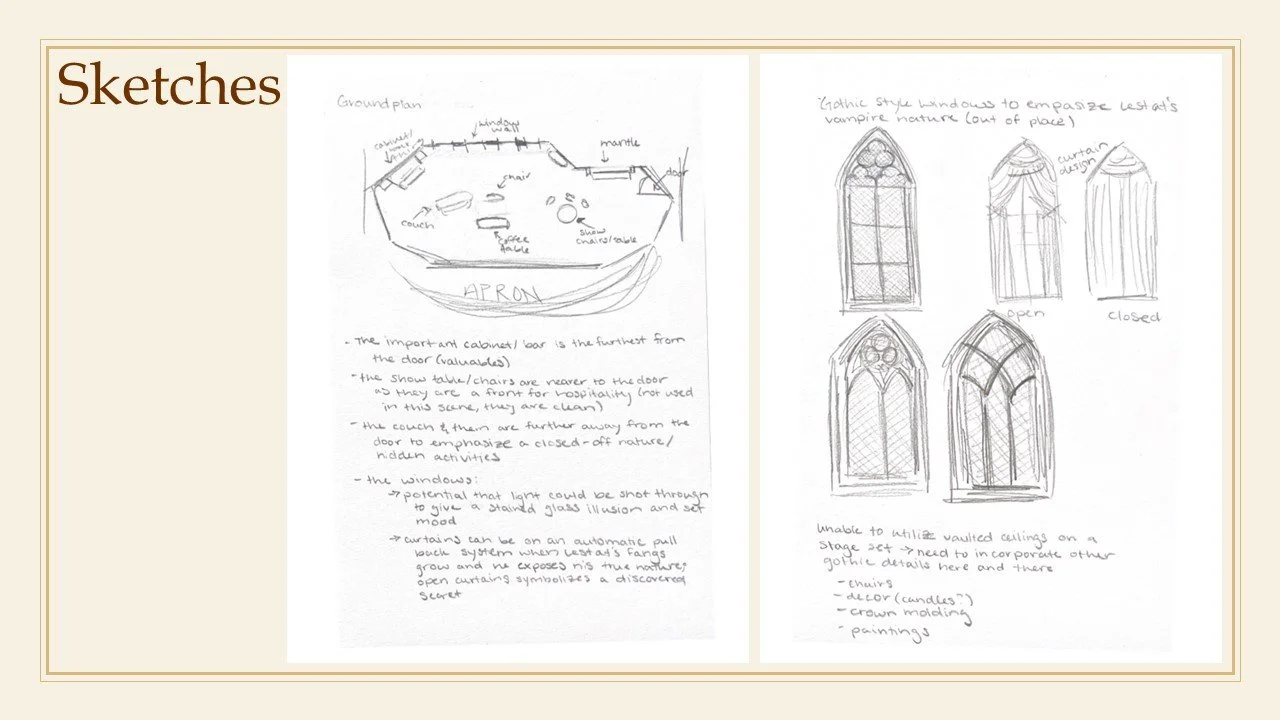 Sketches
Groundplan
window
wall
cabinet/
mantle
door
chair
couch
coffee
table
show
chairs/table
APRON
- The important cabinet/bar is the furthest from
the door (valuables)
- the show table/chairs are nearer to the door
as they are a front for hospitality (not used
in this scene, they are clean)
- the couch & them are further away from the
door to emphasize a closed-off nature/
hidden activities
- the windows:
→ potential that light could be shot through
to give a stained glass illusion and set
mood
→ curtains can be on an automatic pull
back system when Lestat's fangs
grow and he exposes his true nature;
open curtains symbolizes a discovered
secret
Gothic style windows to empasize Lestat's
vampire nature (out of place)
curtain
design
open
closed
Unable to utilize vaulted ceilings on a
stage set → need to incorporate other
gothic details here and there
- chairs
- decor (candles~)
- crown molding
- paintings